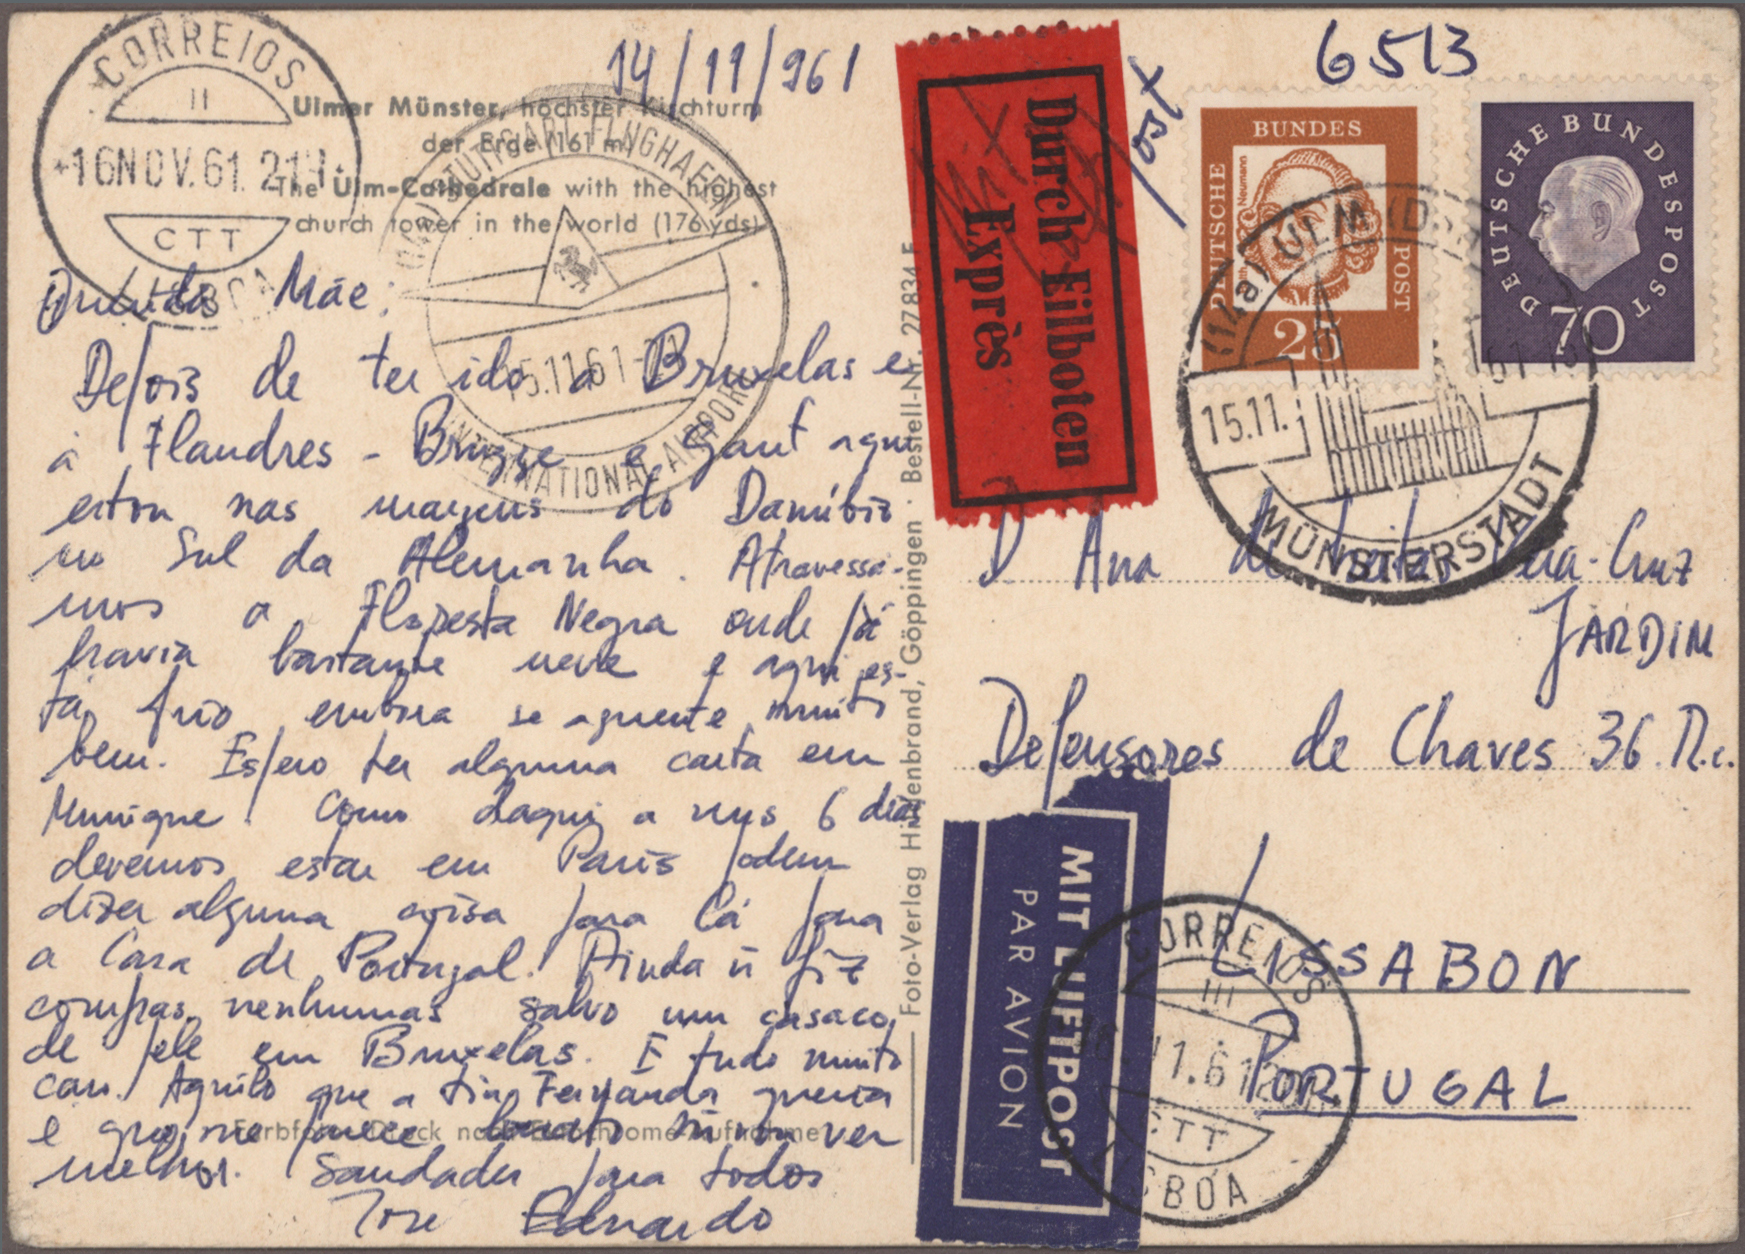 CORREIOS
II
16 NOV. 61. 21H
CTT
LISBOA
14/11/961
Ulmer Münster, höchster Kirchturm
der Erde (161 m)
The Ulm-Cathedrale with the highest
church tower in the world (176 yds)
STUTTGART FLUGHAFEN
15.11.61
INTERNATIONAL AIRPORT
Querida Mãe:
Depois de ter ido a Bruxelas e
à Flandres - Brugge e Gant aqui
estou nas margens do Danúbio
no Sul da Alemanha. Atravessa-
mos a Floresta Negra onde já
havia bastante neve e aqui es-
tá frio embora se aguente muito
bem. Espero ter alguma carta em
Munique. Como daqui a uns 6 dias
devemos estar em Paris podem
dizer alguma coisa para lá para
a Casa de Portugal. Ainda ñ fiz
compras nenhumas salvo um casaco
de pele em Bruxelas. É tudo muito
caro. Aquilo que a tia Fernanda queria
e que me parece ver
melhor. Saudades para todos
José Eduardo
Foto-Verlag Hildenbrand, Göppingen · Bestell-Nr. 27 834 F
Durch Eilboten
Exprès
6513
DEUTSCHE BUNDESPOST
Neumann
25
DEUTSCHE BUNDESPOST
70
(14a) ULM (DONAU)
15.11.61
MÜNSTERSTADT
D Ana de Cruz
JARDIM
Defensores de Chaves 36 R.c.
LISSABON
PORTUGAL
MIT LUFTPOST
PAR AVION
CORREIOS
III
11.61
CTT
LISBOA